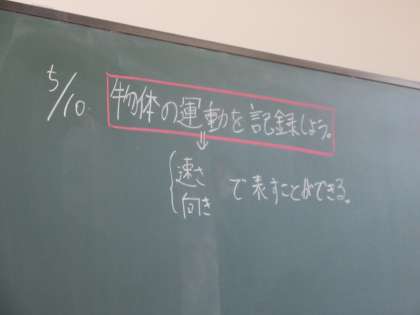 5/10
物体の運動を記録しよう。
⇓
速さ
向き
で表すことができる。